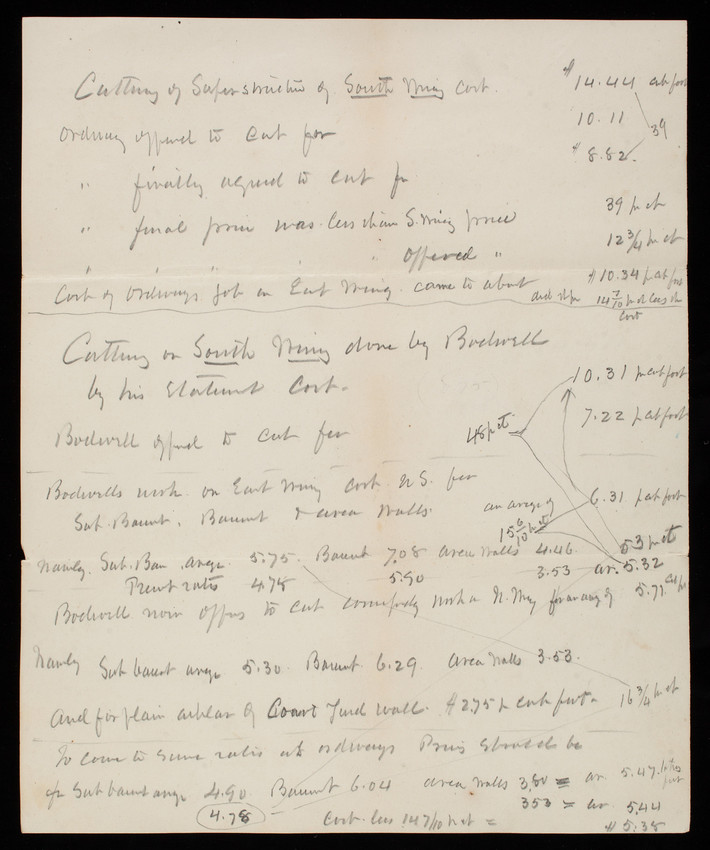 Cutting of Superstructure of South Wing cost. $14.44 a ct foot
Ordway offered to cut for 10.11
39
" finally agreed to cut for $8.82.
" final price was less than S. Wing price 39 pr ct
" " " " offered " 12 3/4 pr ct
Cost of Ordways Job on East Wing came to about $10.34 p ct foot
and is pr 14 7/10 pr ct less
Cost
Cutting on South Wing done by Bodwell
by his Statement Cost. 10.31 pr ct foot
Bodwell offered to cut for 7.22 p ct foot
48 pr ct
Bodwells work on East Wing cost U.S. for 6.31 p ct foot
Sub. Basmt. Basmt & area walls. an average of
15 6/10 pr ct
53 pr ct
Namely. Sub. Bas. avge. 5.75. Basmt 7.08 area walls 4.46. av. 5.32
Prsnt rates 4.78 5.90 3.53
Bodwell now offers to cut work on N. Wing for an avg of 5.71
Namely Sub basmt avge 5.30. Basmt 6.29. area walls 3.53.
16 3/4 pr ct
And for plain ashlar of Court Yard wall. $2.75 p cub foot.
To come to same ratio as ordways Prices should be
for Sub basmt avge 4.90 Basmt 6.04 area walls 3.80 = av. 5.47
4.78 353 = av. 5.44
Cost less 14 7/10 pr ct = $5.38